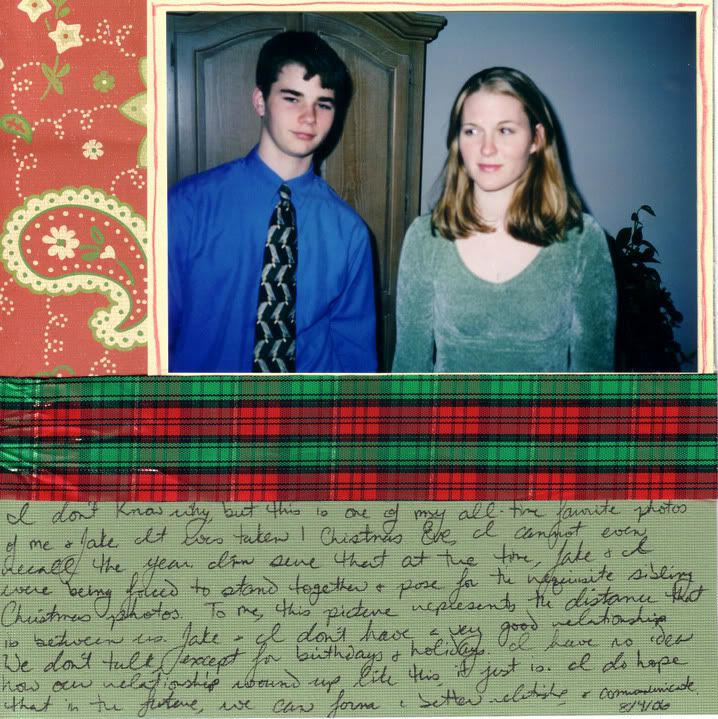 I don't know why, but this is one of my all-time favorite photos
of me & Jake. It was taken 1 Christmas Eve, I cannot even
recall the year. I'm sure that at the time, Jake & I
were being forced to stand together & pose for the requisite sibling
Christmas photos. To me, this picture represents the distance that
is between us. Jake & I don't have a very good relationship.
We don't talk, except for birthdays & holidays. I have no idea
how our relationship wound up like this, it just is. I do hope
that in the future, we can form a better relationship & communicate.
8/9/06